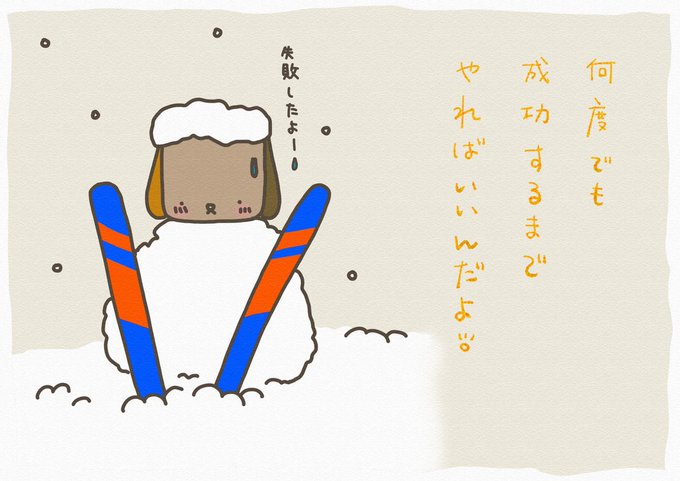 何度でも
成功するまで
やればいいんだよ
失敗したよー